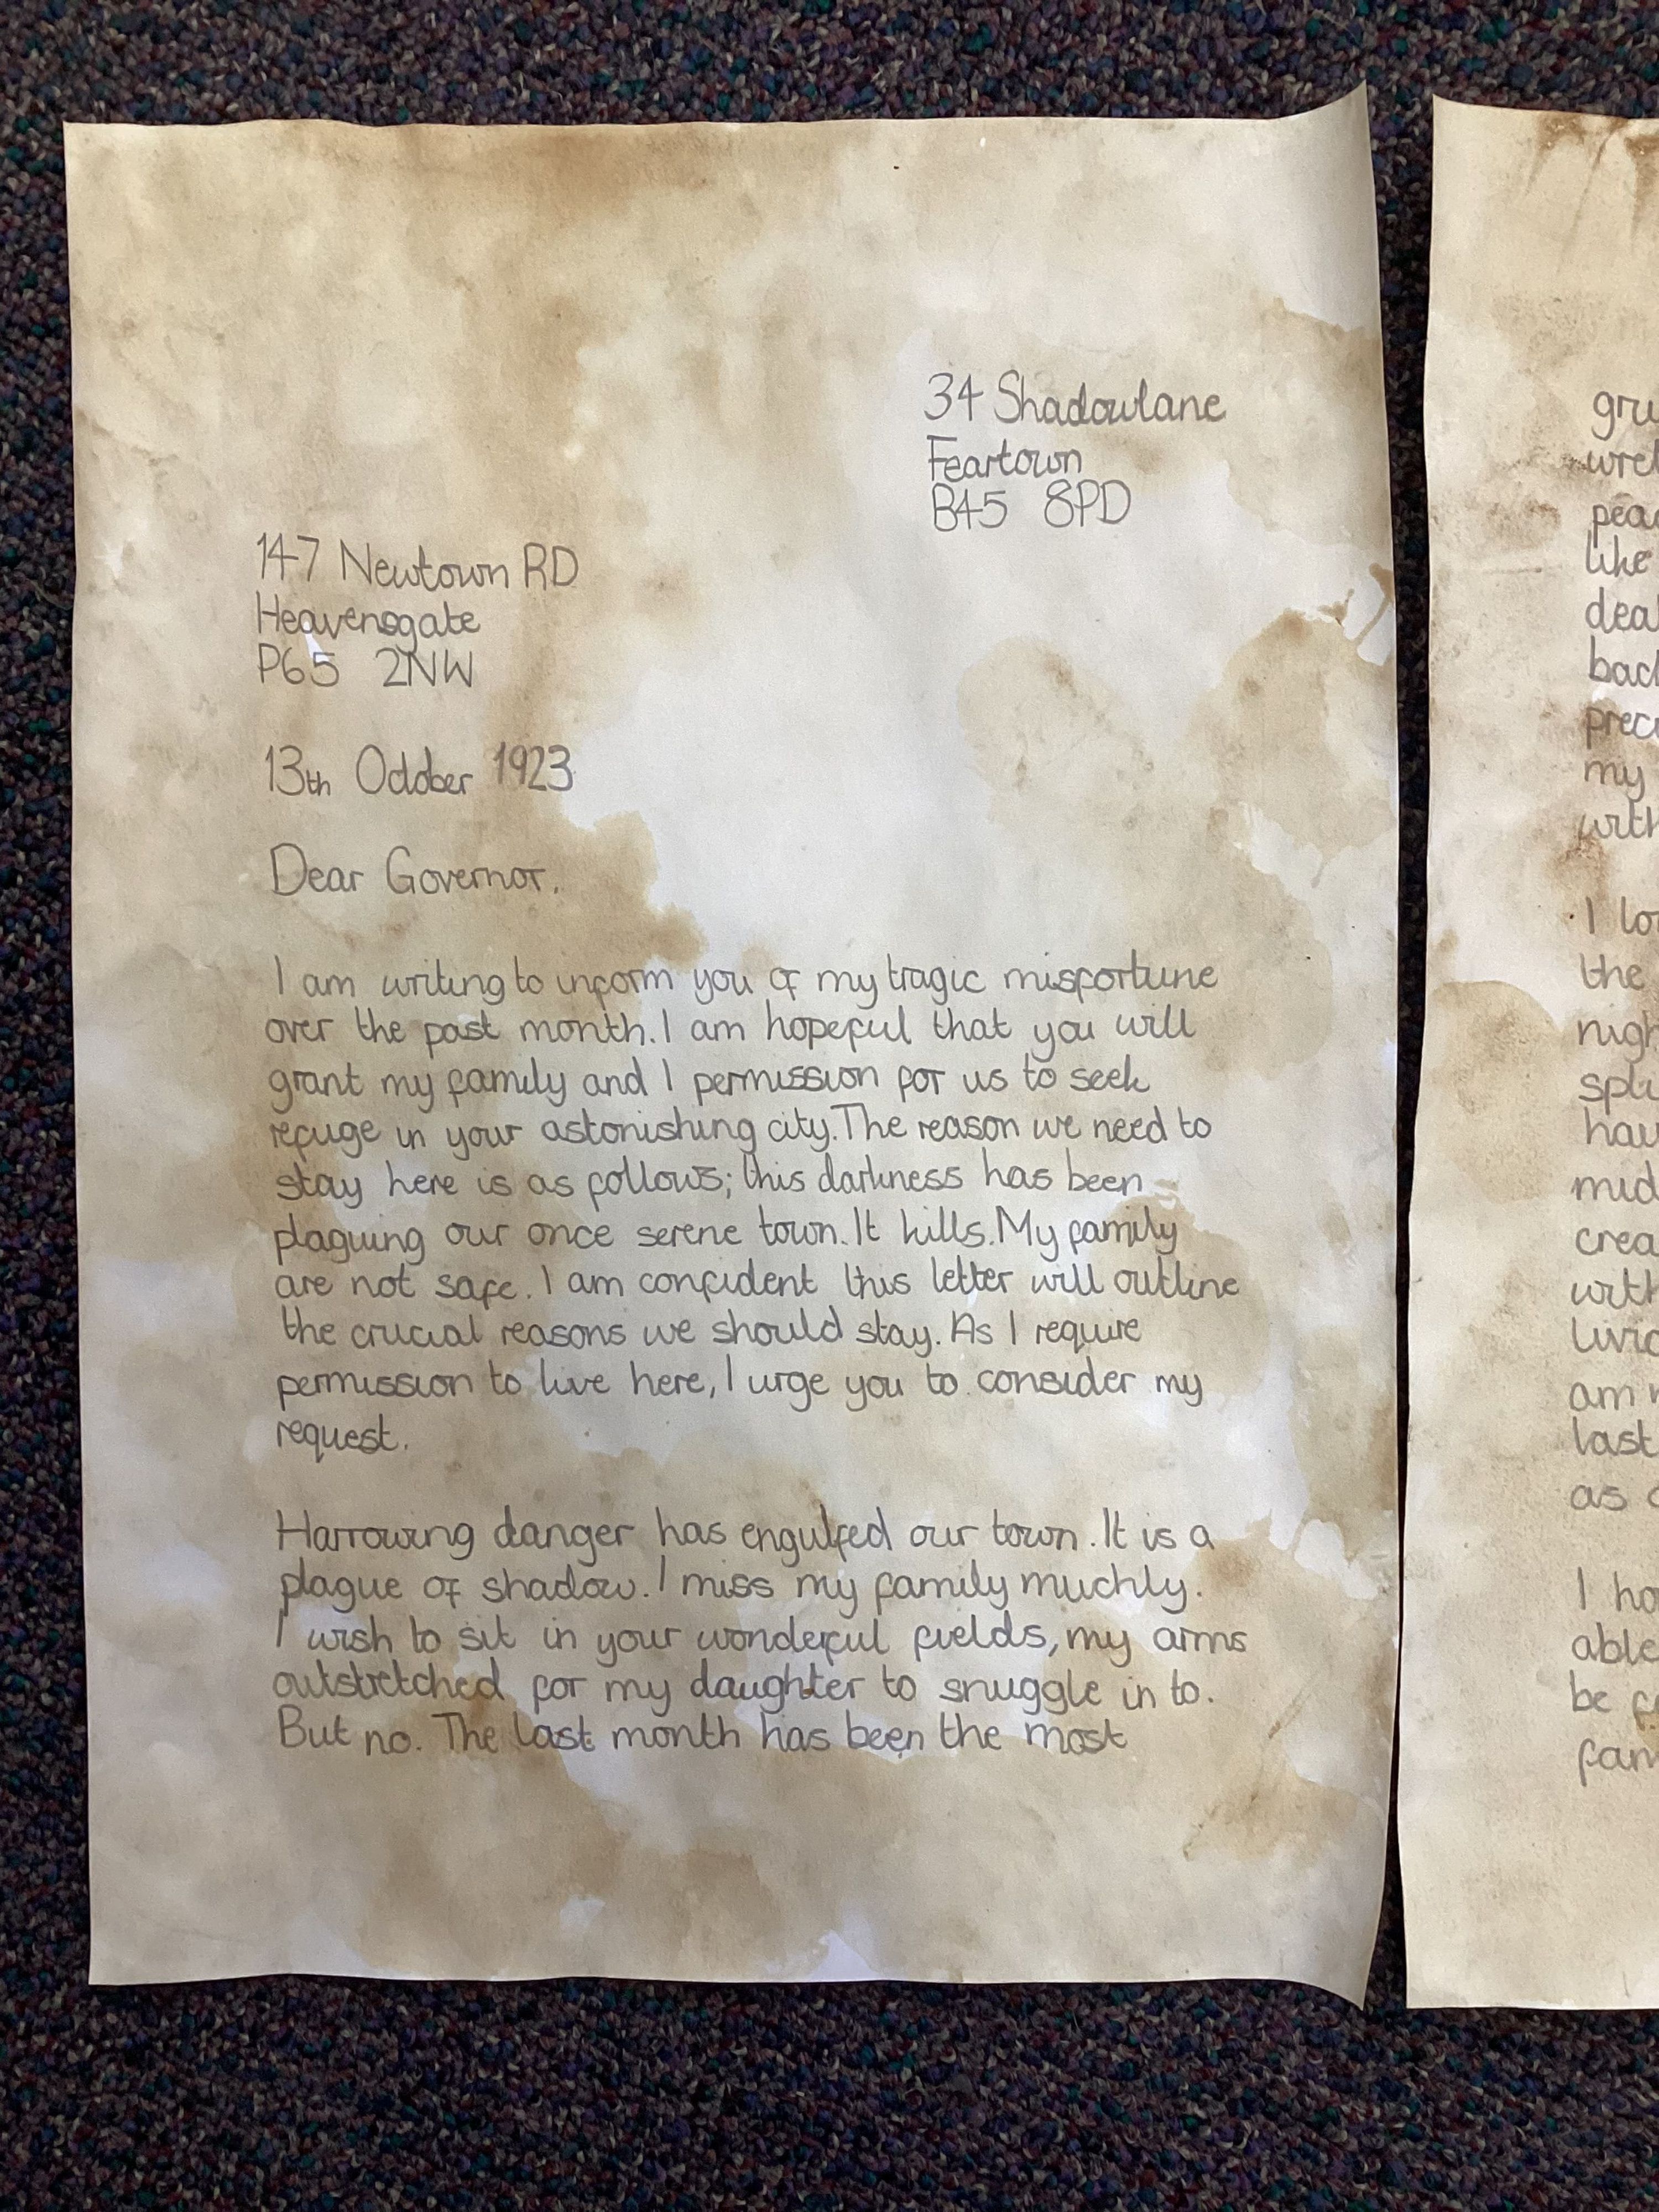 34 Shadowlane
Feartown
B45 8PD
147 Newtown RD
Heavensgate
P65 2NW
13th October 1923
Dear Governor,
I am writing to inform you of my tragic misfortune
over the past month. I am hopeful that you will
grant my family and I permission for us to seek
refuge in your astonishing city. The reason we need to
stay here is as follows; this darkness has been
plaguing our once serene town. It kills. My family
are not safe. I am confident this letter will outline
the crucial reasons we should stay. As I require
permission to live here, I urge you to consider my
request.
Harrowing danger has engulfed our town. It is a
plague of shadow. I miss my family muchly.
I wish to sit in your wonderful fields, my arms
outstretched for my daughter to snuggle in to.
But no. The last month has been the most
like
my
I
the
am
last
as
I
able
be